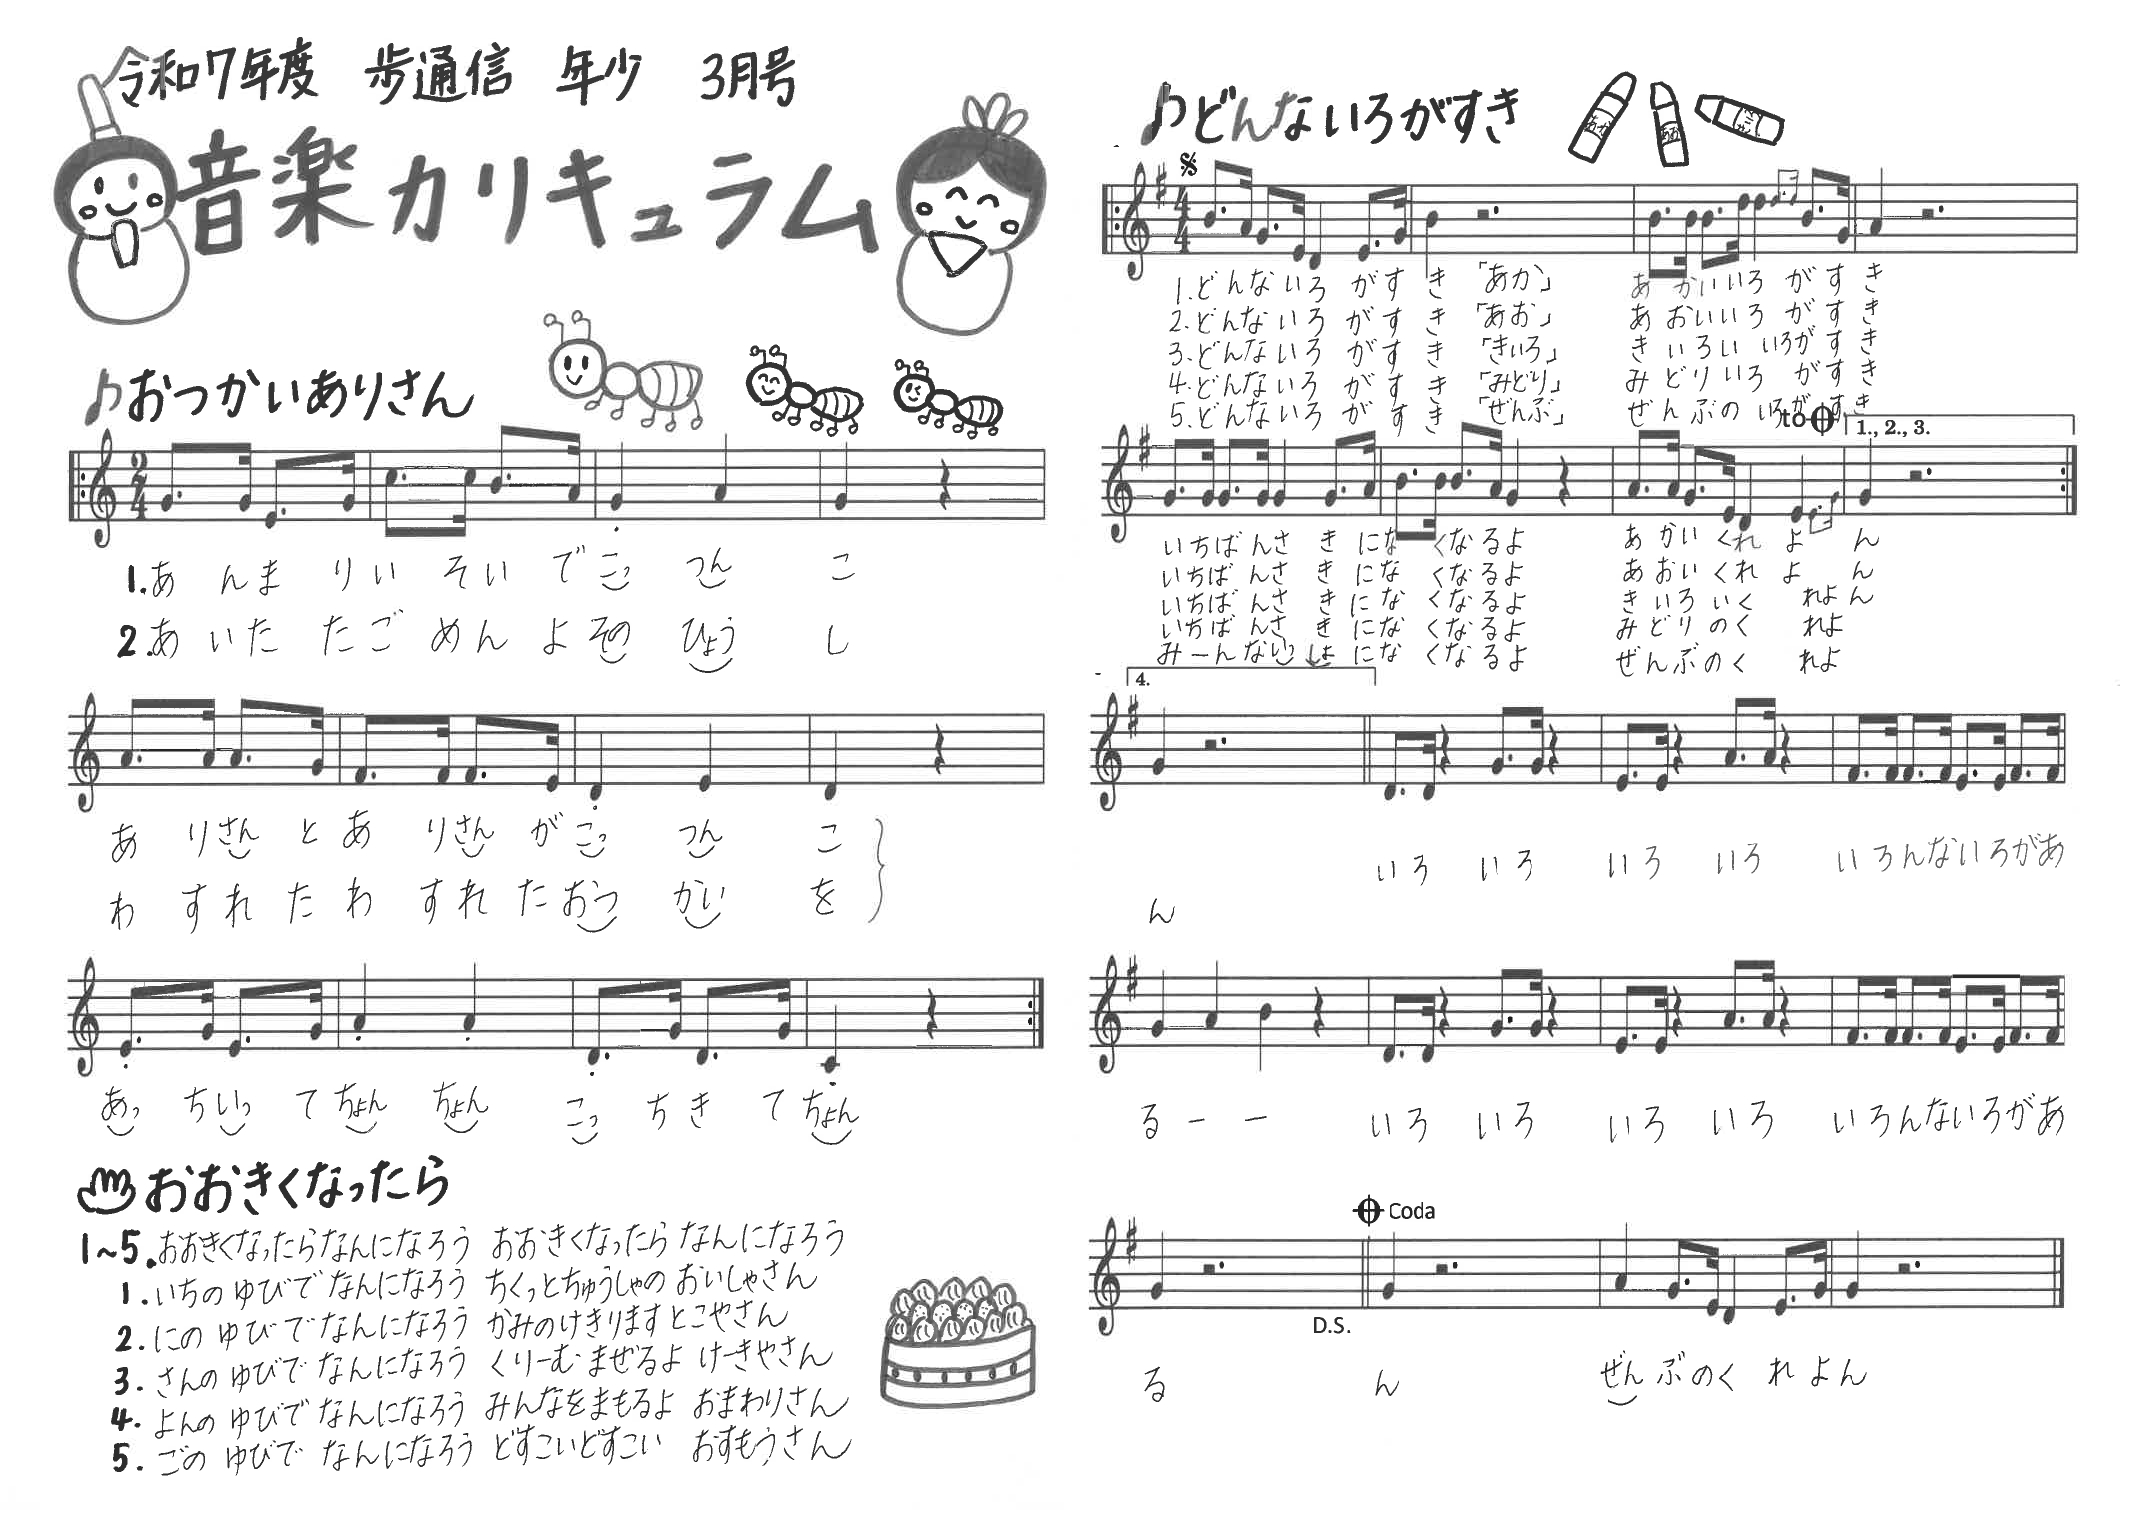 令和7年度 歩通信 年少 3月号
音楽カリキュラム
♪おつかいありさん
1.あんまりいそいでこっつんこ
2.あいたたごめんよそのひょうし
ありさんとありさんがこっつんこ
わすれたわすれたおつかいを
あっちいってちょんちょんこっちきてちょん
おおきくなったら
1~5.おおきくなったらなんになろう おおきくなったらなんになろう
1.いちのゆびでなんになろう ちくっとちゅうしゃの おいしゃさん
2.にのゆびでなんになろう かみのけきります とこやさん
3.さんのゆびでなんになろう くりーむまぜるよ けーきやさん
4.よんのゆびでなんになろう みんなをまもるよ おまわりさん
5.ごのゆびでなんになろう どすこいどすこい おすもうさん
♪どんないろがすき
あか
あお
1.どんないろがすき「あか」 あかいいろがすき
2.どんないろがすき「あお」 あおいいろがすき
3.どんないろがすき「きいろ」 きいろいいろがすき
4.どんないろがすき「みどり」 みどりいろがすき
5.どんないろがすき「ぜんぶ」 ぜんぶのいろがすき
to 1., 2., 3.
いちばんさきになくなるよ あかいくれよん
いちばんさきになくなるよ あおいくれよん
いちばんさきになくなるよ きいろいくれよん
いちばんさきになくなるよ みどりのくれよ
みーんないっしょになくなるよ ぜんぶのくれよ
4.
んいろいろいろいろいろんないろがあ
るーーいろいろいろいろいろんないろがあ
Coda
D.S.
るんぜんぶのくれよん